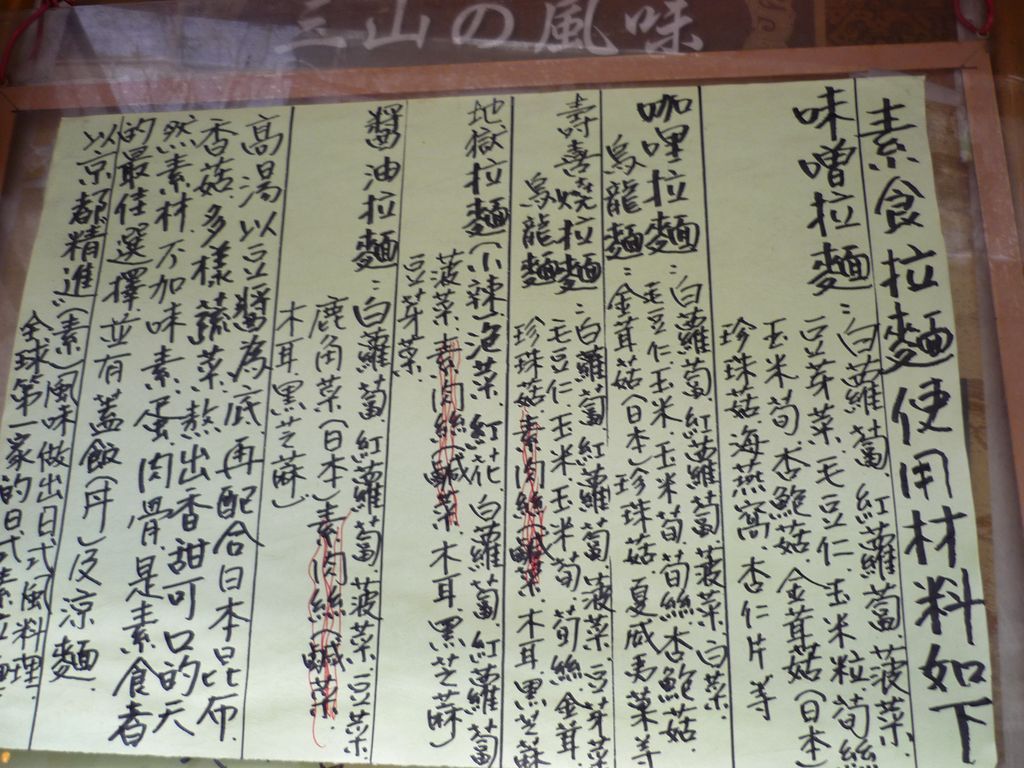 三山の風味
素食拉麵使用材料如下
味噌拉麵：白蘿蔔.紅蘿蔔.菠菜.
豆芽菜.毛豆仁.玉米粒.荀絲
玉米荀.杏鮑菇.金茸菇(日本)
珍珠菇.海燕窩.杏仁片等
咖哩拉麵
烏龍麵：白蘿蔔.紅蘿蔔.菠菜.白菜.
毛豆仁.玉米.玉米荀.荀絲.杏鮑菇.
金茸菇(日本)珍珠菇.夏威夷菓等
壽喜燒拉麵
烏龍麵：白蘿蔔.紅蘿蔔.菠菜.豆芽菜
毛豆仁.玉米.玉米荀.荀絲.金茸
珍珠菇.素肉絲.鹹菜.木耳.黑芝蔴
地獄拉麵(小辣)泡菜.紅花.白蘿蔔.紅蘿蔔
菠菜.素肉絲.鹹菜.木耳.黑芝蔴)
豆芽菜
醬油拉麵：白蘿蔔.紅蘿蔔.菠菜.豆菜.
鹿角菜(日本)素肉絲(鹹菜.
木耳.黑芝蔴)
高湯以豆醬為底再配合日本昆布
香菇.多樣蔬菜.熬出香甜可口的天
然素材.不加味素.蛋.肉骨.是素食者
的最佳選擇.並有蓋飯(丼)及涼麵.
以京都精進(素)風味做出日式風料理
全球第一家的日式素拉麵